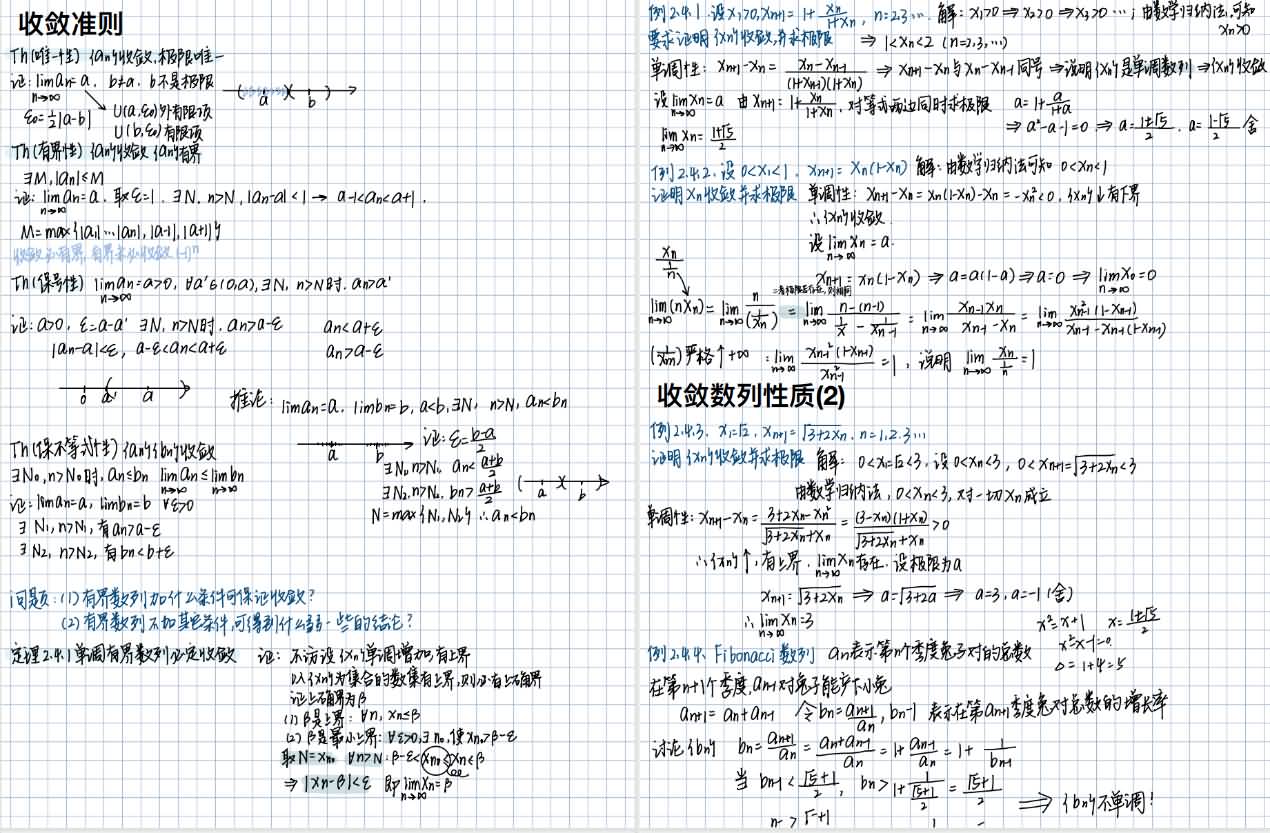 收敛准则
Th(唯一性) {an}收敛,极限唯一
证: lim an=a, b≠a, b不是极限
n→∞
a b
ε0=½|a-b| U(a,ε0)外有限项
U(b,ε0)有限项
Th(有界性) {an}收敛 {an}有界
∃M, |an|≤M
证: lim an=a. 取ε=1. ∃N, n>N, |an-a|<1 → a-1<an<a+1.
n→∞
M=max{|a1|…|an|, |a-1|, |a+1|}
收敛必有界,有界未必收敛 (-1)^n
Th(保号性) lim an=a>0, ∀a'∈(0,a), ∃N, n>N时. an>a'
n→∞
证: a>0, ε=a-a' ∃N, n>N时. an>a-ε an<a+ε
|an-a|<ε, a-ε<an<a+ε an>a-ε
0 a' a
推论: lim an=a. lim bn=b, a<b, ∃N, n>N, an<bn
a b
证: ε=(b-a)/2
∃N1, n>N1, an<(a+b)/2
∃N2, n>N2, bn>(a+b)/2
N=max{N1,N2} ∴an<bn
a b
Th(保不等式性) {an}{bn}收敛
∃N0, n>N0时, an≤bn lim an≤lim bn
n→∞ n→∞
证: lim an=a, lim bn=b ∀ε>0
∃N1, n>N1, 有an>a-ε
∃N2, n>N2, 有bn<b+ε
问题: (1) 有界数列加什么条件可保证收敛?
(2) 有界数列不加其它条件,可得到什么弱一些的结论?
定理2.4.1 单调有界数列必定收敛 证: 不访设{xn}单调增加,有上界
以{xn}为集合的数集有上界,则必有上确界
证上确界为β
(1) β是上界: ∀n, xn≤β
(2) β是最小上界: ∀ε>0, ∃n0, 使xn0>β-ε
取N=xn0 ∀n>N: β-ε<xn0≤xn≤β
⇒ |xn-β|<ε 即lim xn=β
n→∞
例2.4.1. 设x1>0, xn+1=1+xn/(1+xn), n=2,3…. 解: x1>0 ⇒ x2>0 ⇒ x3>0 …; 由数学归纳法,可知
xn>0
要求证明{xn}收敛,并求极限 ⇒ 1<xn<2 (n=2,3,…)
单调性: xn+1-xn=(xn-xn-1)/((1+xn-1)(1+xn)) ⇒ xn+1-xn与xn-xn-1同号 ⇒说明{xn}是单调数列 ⇒{xn}收敛
设lim xn=a 由xn+1=1+xn/(1+xn), 对等式两边同时求极限 a=1+a/(1+a)
n→∞
⇒ a²-a-1=0 ⇒ a=(1+√5)/2, a=(1-√5)/2 舍
lim xn=(1+√5)/2
n→∞
例2.4.2. 设0<x1<1, xn+1=xn(1-xn) 解: 由数学归纳法可知 0<xn<1
证明xn收敛并求极限 单调性: xn+1-xn=xn(1-xn)-xn=-xn²<0, {xn}↓有下界
∴{xn}收敛.
设lim xn=a.
n→∞
xn+1=xn(1-xn) ⇒ a=a(1-a)⇒a=0 ⇒ lim xn=0
n→∞
xn/(1/n)
lim(nxn)=lim n/(1/xn)=lim (n-(n-1))/(1/xn-1/xn-1)=lim xn-1xn/(xn-1-xn)=lim xn-1²(1-xn-1)/(xn-1-xn-1(1-xn-1))
n→∞ n→∞ n→∞ n→∞ n→∞
(1/xn)严格↑+∞ =lim xn-1²(1-xn-1)/xn-1²=1, 说明 lim xn/(1/n)=1
n→∞ n→∞
收敛数列性质(2)
例2.4.3. x1=√2, xn+1=√(3+2xn), n=1,2,3…
证明{xn}收敛并求极限 解: 0<x1=√2<3, 设0<xn<3, 0<xn+1=√(3+2xn)<3
由数学归纳法, 0<xn<3, 对一切xn成立
单调性: xn+1-xn=(3+2xn-xn²)/(√(3+2xn)+xn)=(3-xn)(1+xn)/(√(3+2xn)+xn)>0
∴{xn}↑, 有上界. lim xn存在. 设极限为a
n→∞
xn+1=√(3+2xn) ⇒ a=√(3+2a) ⇒ a=3, a=-1 (舍)
∴lim xn=3
n→∞
x²=x+1 x=(1±√5)/2
x²-x-1=0
Δ=1+4=5
例2.4.4. Fibonacci数列 an表示第n个季度兔子对的总数
在第n+1个季度, an-1对兔子能产下小兔
an+1=an+an-1 令bn=an+1/an, bn-1 表示在第an+1季度兔对总数的增长率
讨论{bn} bn=an+1/an=(an+an-1)/an=1+an-1/an=1+1/bn-1
当 bn-1<(√5+1)/2, bn>1+1/((√5+1)/2)=(√5+1)/2
⇒ {bn}不单调!